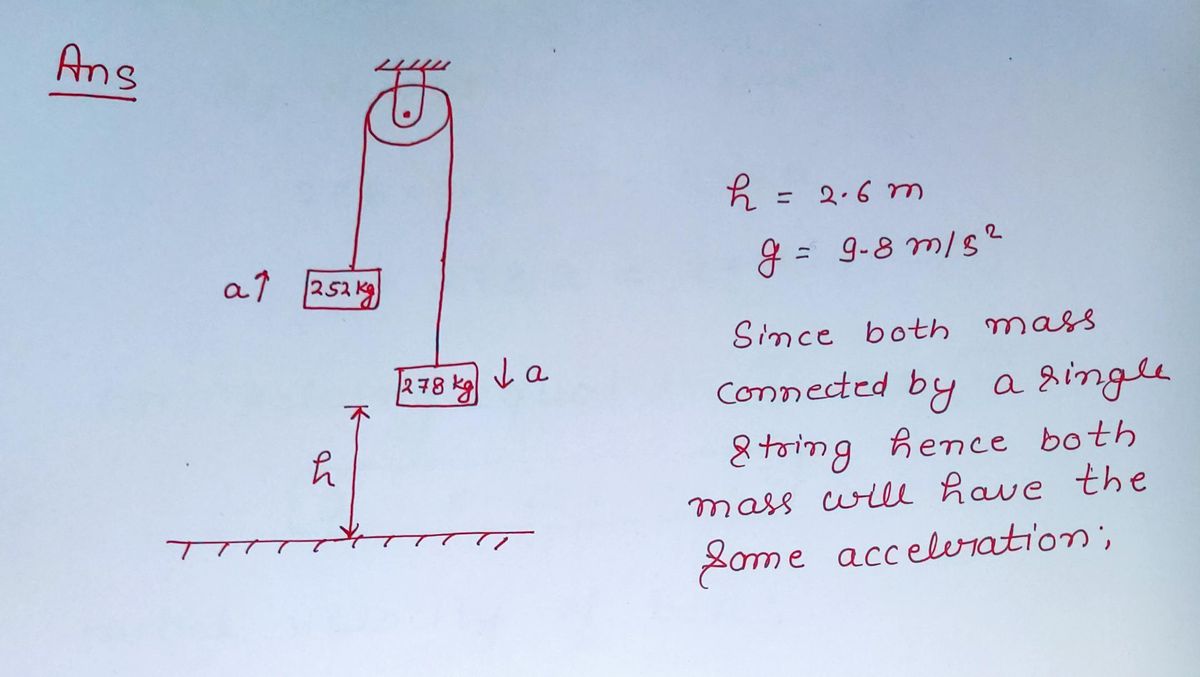 Ans
a↑ 252 kg
278 kg ↓ a
h
h = 2.6 m
g = 9.8 m/s²
Since both mass
connected by a single
string hence both
mass will have the
some acceleration;